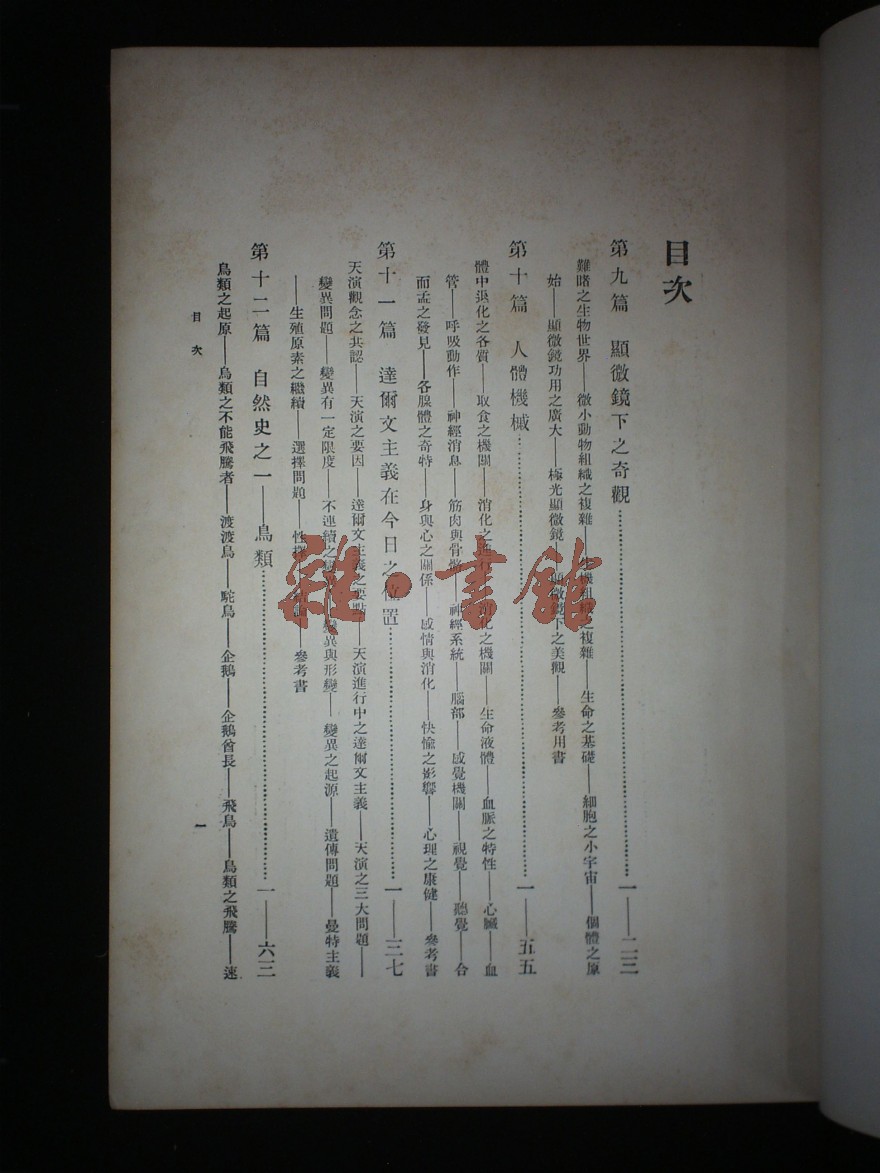 目次
第九篇　顯微鏡下之奇觀……一——二三
難睹之生物世界——微小動物組織之複雜——機組織之複雜——生命之基礎——細胞之小宇宙——個體之原
始——顯微鏡功用之廣大——極光顯微鏡——顯微鏡下之美觀——參考用書
第十篇　人體機械……一——五五
體中退化之各質——取食之機關——消化之進行——消化之機關——生命液體——血脈之特性——心臟——血
管——呼吸動作——神經消息——筋肉與骨骼——神經系統——腦部——感覺機關——視覺——聽覺——合
而孟之發見——各腺體之奇特——身與心之關係——感情與消化——快愉之影響——心理之康健——參考書
第十一篇　達爾文主義在今日之位置……一——三七
天演觀念之共認——天演之要因——達爾文主義之要點——天演進行中之達爾文主義——天演之三大問題——
變異問題——變異有一定限度——不連續之變異——變異與形變——變異之起源——遺傳問題——曼特主義
——生殖原素之繼續——選擇問題——性擇——參考書
第十二篇　自然史之一——鳥類……一——六三
鳥類之起原——鳥類之不能飛騰者——渡渡鳥——駝鳥——企鵝——企鵝酋長——飛鳥——鳥類之飛騰——速
目次
一
雜·書館